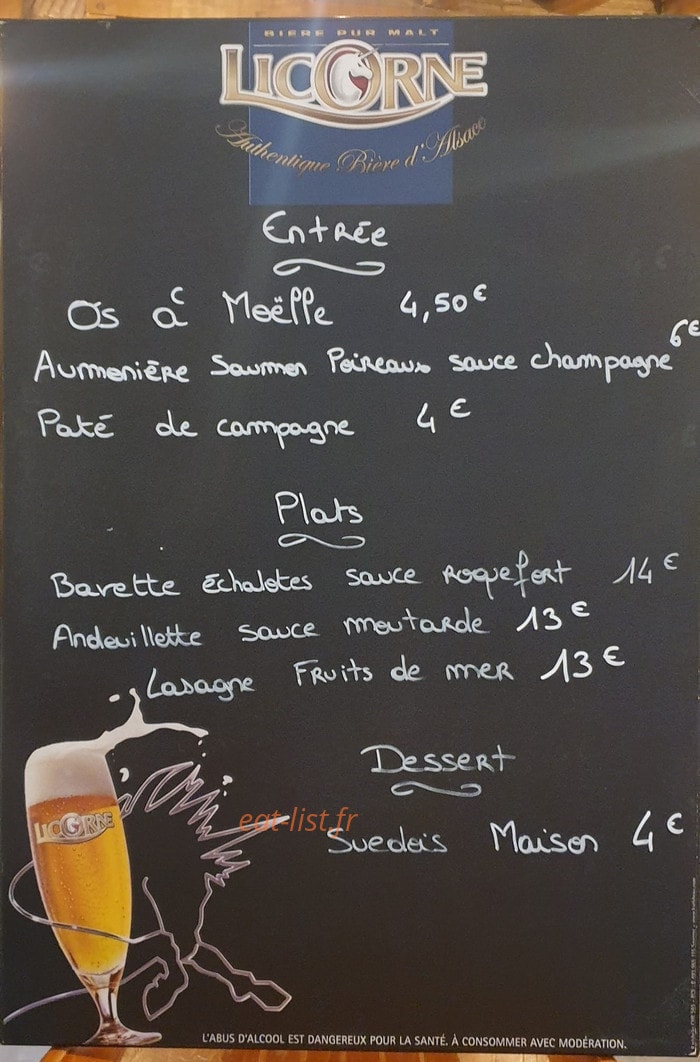 BIÈRE PUR MALT
LICORNE
Authentique Bière d'Alsace
Entrée
Os à Moëlle 4,50€
Aumonière Saumon Poireaux sauce champagne 6€
Paté de campagne 4€
Plats
Bavette échalotes sauce roquefort 14€
Andouillette sauce moutarde 13€
Lasagne Fruits de mer 13€
Dessert
LICORNE
eat-list.fr
Suedois Maison 4€
L'ABUS D'ALCOOL EST DANGEREUX POUR LA SANTÉ. À CONSOMMER AVEC MODÉRATION.